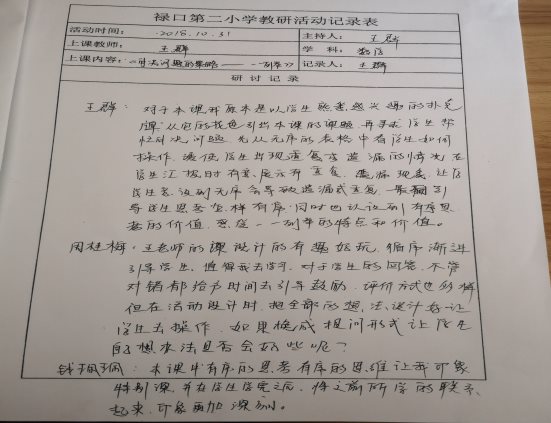 禄口第二小学教研活动记录表
活动时间: 2018.10.31 主持人: 王群
上课教师: 王群 学 科: 数学
上课内容:《解决问题的策略——一一列举》 记录人: 王群
研 讨 记 录
王群: 对于本课我原本是以学生熟悉感兴趣的扑克
牌 从它的花色引出本课的课题 再寻求学生帮
忙解决问题 先从无序的表格中看学生如何
操作,遇使学生出现重复或遗漏的情况 在
学生汇报时有意展示有重复、遗漏现象,让
学生意识到无序会导致遗漏或重复 引
导学生思考怎样有序,同时也认识到有序思
考的价值 一一列举的特点和价值。
周桂梅: 王老师的课设计的有趣好玩,循序渐进
引导学生,值得我去学习,对于学生的回答,不管
对错都给予时间去引导鼓励,评价方式也多样
但在活动设计时,把全部的想法设计好让
学生去操作,如果换成提问形式让学生
的想法是否会好些呢?
钱珮珮: 本课中有序的思考有序的思维让我印象
特别深,并在学生学完之后,将之前所学的联系
起来,印象更加深刻。